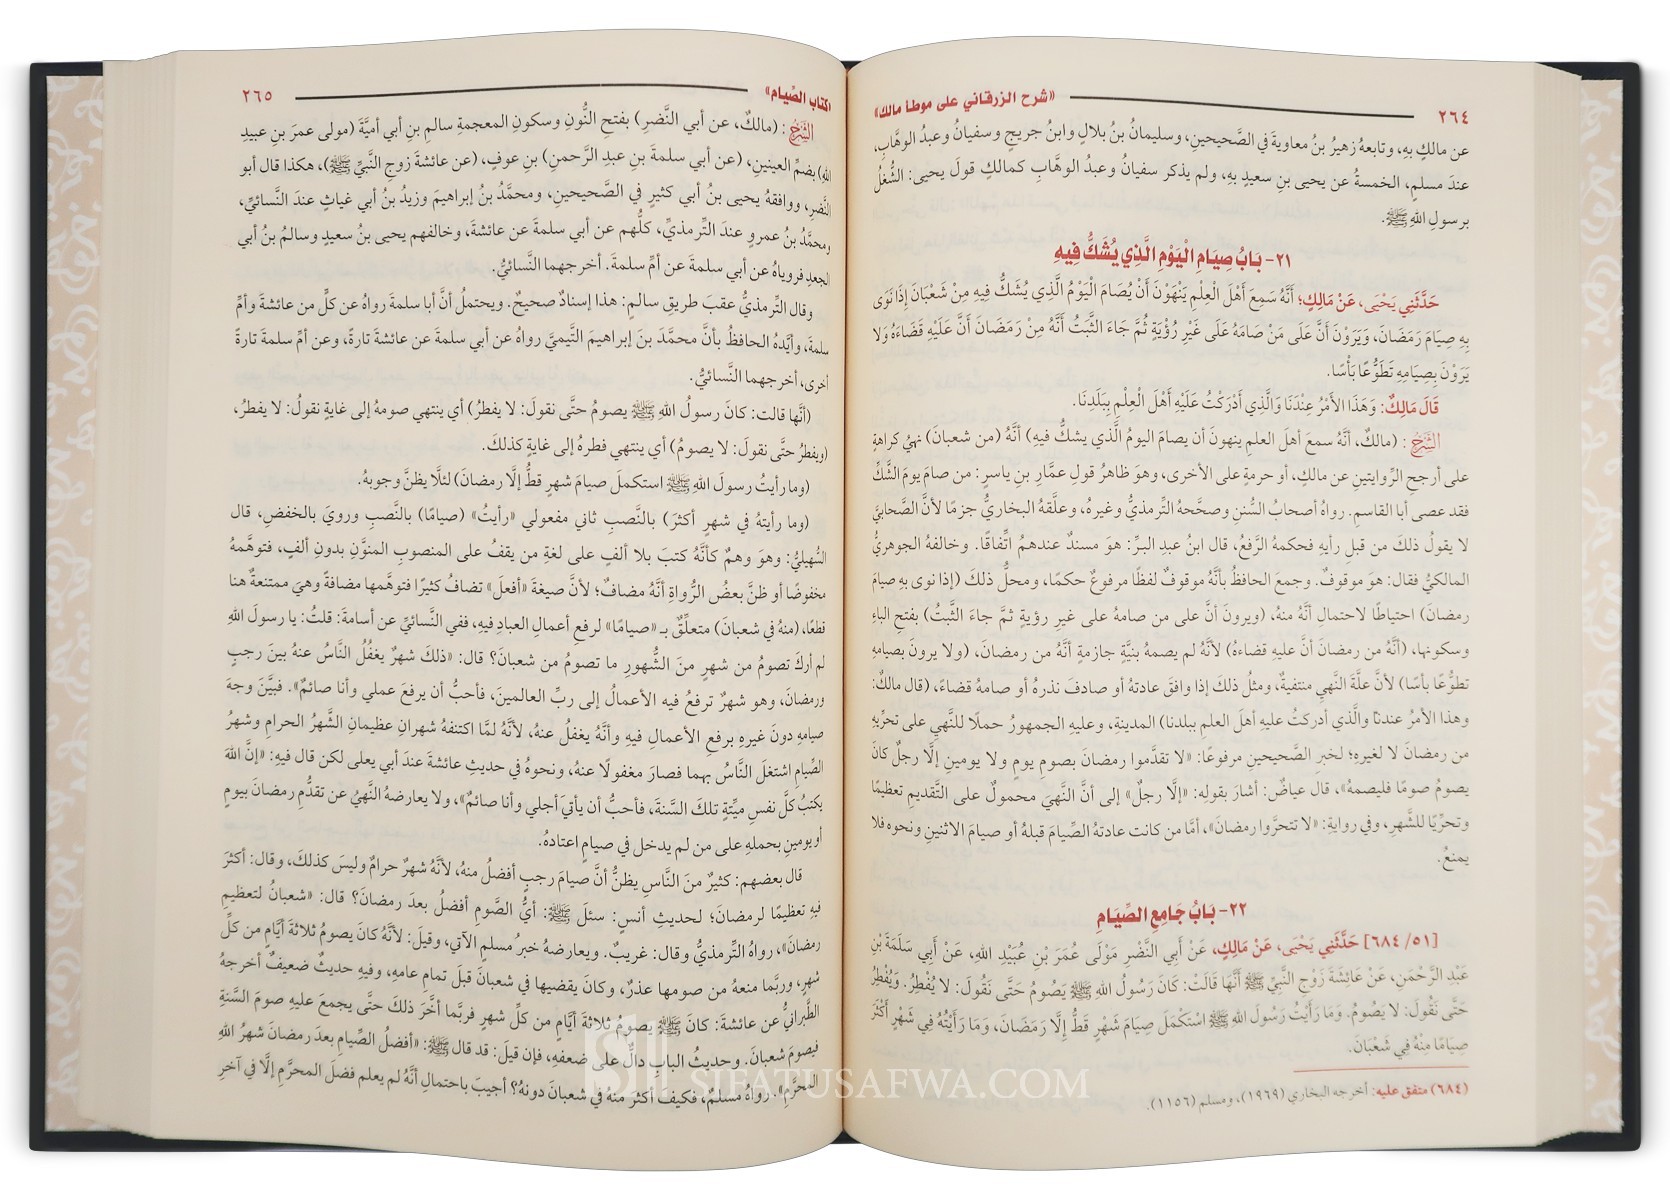 «شرح الزرقاني على موطأ مالك» ٢٦٤
عن مالكٍ بهِ، وتابعهُ زهيرُ بنُ معاويةَ في الصَّحيحينِ، وسليمانُ بنُ بلالٍ وابنُ جريجٍ وسفيانُ وعبدُ الوهَّابِ،
عندَ مسلمٍ، الخمسةُ عن يحيى بنِ سعيدٍ بهِ، ولم يذكر سفيانُ وعبدُ الوهَّابِ كمالكٍ قولَ يحيى: الشُّغلُ
برسولِ اللهِ ﷺ.
٢١- بَابُ صِيَامِ الْيَوْمِ الَّذِي يُشَكُّ فِيهِ
حَدَّثَنِي يَحْيَى، عَنْ مَالِكٍ؛ أَنَّهُ سَمِعَ أَهْلَ الْعِلْمِ يَنْهَوْنَ أَنْ يُصَامَ الْيَوْمُ الَّذِي يُشَكُّ فِيهِ مِنْ شَعْبَانَ إِذَا نَوَى
بِهِ صِيَامَ رَمَضَانَ، وَيَرَوْنَ أَنَّ عَلَى مَنْ صَامَهُ عَلَى غَيْرِ رُؤْيَةٍ ثُمَّ جَاءَ الثَّبَتُ أَنَّهُ مِنْ رَمَضَانَ أَنَّ عَلَيْهِ قَضَاءَهُ وَلَا
يَرَوْنَ بِصِيَامِهِ تَطَوُّعًا بَأْسًا.
قَالَ مَالِكٌ: وَهَذَا الأَمْرُ عِنْدَنَا وَالَّذِي أَدْرَكْتُ عَلَيْهِ أَهْلَ الْعِلْمِ بِبَلَدِنَا.
الشَّرْحُ: (مالكٌ، أنَّهُ سمعَ أهلَ العلمِ ينهونَ أن يصامَ اليومُ الَّذي يشكُّ فيهِ) أنَّهُ (من شعبانَ) نهيُ كراهةٍ
على أرجحِ الرِّوايتينِ عن مالكٍ، أو حرمةٍ على الأخرى، وهوَ ظاهرُ قولِ عمَّارِ بنِ ياسرٍ: من صامَ يومَ الشَّكِّ
فقد عصى أبا القاسمِ. رواهُ أصحابُ السُّننِ وصحَّحهُ التِّرمذيُّ وغيرهُ، وعلَّقهُ البخاريُّ جزمًا لأنَّ الصَّحابيَّ
لا يقولُ ذلكَ من قبلِ رأيهِ فحكمهُ الرَّفعُ، قال ابنُ عبدِ البرِّ: هو مسندٌ عندهمُ اتِّفاقًا. وخالفهُ الجوهريُّ
المالكيُّ فقال: هوَ موقوفٌ. وجمعَ الحافظُ بأنَّهُ موقوفٌ لفظًا مرفوعٌ حكمًا، ومحلُّ ذلكَ (إذا نوى بهِ صيامَ
رمضانَ) احتياطًا لاحتمالِ أنَّهُ منهُ، (ويرونَ أنَّ على من صامهُ على غيرِ رؤيةٍ ثمَّ جاءَ الثَّبتُ) بفتحِ الباءِ
وسكونها، (أنَّهُ من رمضانَ أنَّ عليهِ قضاءهُ) لأنَّهُ لم يصمهُ بنيَّةٍ جازمةٍ أنَّهُ من رمضانَ، (ولا يرونَ بصيامهِ
تطوُّعًا بأسًا) لأنَّ علَّةَ النَّهيِ منتفيةٌ، ومثلُ ذلكَ إذا وافقَ عادتهُ أو صادفَ نذرهُ أو صامهُ قضاءً، (قال مالكٌ:
وهذا الأمرُ عندنا والَّذي أدركتُ عليهِ أهلَ العلمِ ببلدنا) المدينةِ، وعليهِ الجمهورُ حملًا للنَّهيِ على تحرِّيهِ
من رمضانَ لا لغيرهِ؛ لخبرِ الصَّحيحينِ مرفوعًا: «لا تقدَّموا رمضانَ بصومِ يومٍ ولا يومينِ إلَّا رجلٌ كانَ
يصومُ صومًا فليصمهُ»، قال عياضٌ: أشارَ بقولهِ: «إلَّا رجلٌ» إلى أنَّ النَّهيَ محمولٌ على التَّقديمِ تعظيمًا
وتحرِّيًا للشَّهرِ، وفي روايةٍ: «لا تتحرَّوا رمضانَ»، أمَّا من كانت عادتهُ الصِّيامَ قبلهُ أو صيامَ الاثنينِ ونحوهِ فلا
يمنعُ.
٢٢- بَابُ جَامِعِ الصِّيَامِ
[٦٨٤/٥١] حَدَّثَنِي يَحْيَى، عَنْ مَالِكٍ، عَنْ أَبِي النَّضْرِ مَوْلَى عُمَرَ بْنِ عُبَيْدِ اللهِ، عَنْ أَبِي سَلَمَةَ بْنِ
عَبْدِ الرَّحْمَنِ، عَنْ عَائِشَةَ زَوْجِ النَّبِيِّ ﷺ أَنَّهَا قَالَتْ: كَانَ رَسُولُ اللهِ ﷺ يَصُومُ حَتَّى نَقُولَ: لَا يُفْطِرُ. وَيُفْطِرُ
حَتَّى نَقُولَ: لَا يَصُومُ. وَمَا رَأَيْتُ رَسُولَ اللهِ ﷺ اسْتَكْمَلَ صِيَامَ شَهْرٍ قَطُّ إِلَّا رَمَضَانَ، وَمَا رَأَيْتُهُ فِي شَهْرٍ أَكْثَرَ
صِيَامًا مِنْهُ فِي شَعْبَانَ.
(٦٨٤) متفق عليه: أخرجه البخاري (١٩٦٩)، ومسلم (١١٥٦).
«كتاب الصِّيام» ٢٦٥
الشَّرْحُ: (مالكٌ، عن أبي النَّضرِ) بفتحِ النُّونِ وسكونِ المعجمةِ سالمِ بنِ أبي أميَّةَ (مولى عمرَ بنِ عبيدِ
اللهِ) بضمِّ العينينِ، (عن أبي سلمةَ بنِ عبدِ الرَّحمنِ) بنِ عوفٍ، (عن عائشةَ زوجِ النَّبيِّ ﷺ)، هكذا قال أبو
النَّضرِ، ووافقهُ يحيى بنُ أبي كثيرٍ في الصَّحيحينِ، ومحمَّدُ بنُ إبراهيمَ وزيدُ بنُ أبي غياثٍ عندَ النَّسائيِّ،
ومحمَّدُ بنُ عمرٍو عندَ التِّرمذيِّ، كلُّهم عن أبي سلمةَ عن عائشةَ، وخالفهم يحيى بنُ سعيدٍ وسالمُ بنُ أبي
الجعدِ فروياهُ عن أبي سلمةَ عن أمِّ سلمةَ. أخرجهما النَّسائيُّ.
وقال التِّرمذيُّ عقبَ طريقِ سالمٍ: هذا إسنادٌ صحيحٌ. ويحتملُ أنَّ أبا سلمةَ رواهُ عن كلٍّ من عائشةَ وأمِّ
سلمةَ، وأيَّدهُ الحافظُ بأنَّ محمَّدَ بنَ إبراهيمَ التَّيميَّ رواهُ عن أبي سلمةَ عن عائشةَ تارةً، وعن أمِّ سلمةَ تارةً
أخرى، أخرجهما النَّسائيُّ.
(أنَّها قالت: كانَ رسولُ اللهِ ﷺ يصومُ حتَّى نقولَ: لا يفطرُ) أي ينتهي صومهُ إلى غايةٍ نقولُ: لا يفطرُ،
(ويفطرُ حتَّى نقولَ: لا يصومُ) أي ينتهي فطرهُ إلى غايةٍ كذلكَ.
(وما رأيتُ رسولَ اللهِ ﷺ استكملَ صيامَ شهرٍ قطُّ إلَّا رمضانَ) لئلَّا يظنَّ وجوبهُ.
(وما رأيتهُ في شهرٍ أكثرَ) بالنَّصبِ ثاني مفعولي «رأيتُ» (صيامًا) بالنَّصبِ ورويَ بالخفضِ، قال
السُّهيليُّ: وهوَ وهمٌ كأنَّهُ كتبَ بلا ألفٍ على لغةِ من يقفُ على المنصوبِ المنوَّنِ بدونِ ألفٍ، فتوهَّمهُ
مخفوضًا أو ظنَّ بعضُ الرُّواةِ أنَّهُ مضافٌ؛ لأنَّ صيغةَ «أفعلَ» تضافُ كثيرًا فتوهَّمها مضافةً وهيَ ممتنعةٌ هنا
قطعًا، (منهُ في شعبانَ) متعلِّقٌ بـ «صيامًا» لرفعِ أعمالِ العبادِ فيهِ، ففي النَّسائيِّ عن أسامةَ: قلتُ: يا رسولَ اللهِ
لم أركَ تصومُ من شهرٍ منَ الشُّهورِ ما تصومُ من شعبانَ؟ قال: «ذلكَ شهرٌ يغفُلُ النَّاسُ عنهُ بينَ رجبٍ
ورمضانَ، وهو شهرٌ ترفعُ فيه الأعمالُ إلى ربِّ العالمينَ، فأحبُّ أن يرفعَ عملي وأنا صائمٌ». فبيَّنَ وجهَ
صيامهِ دونَ غيرهِ برفعِ الأعمالِ فيهِ وأنَّهُ يغفلُ عنهُ، لأنَّهُ لمَّا اكتنفهُ شهرانِ عظيمانِ الشَّهرُ الحرامِ وشهرُ
الصِّيامِ اشتغلَ النَّاسُ بهما فصارَ مغفولًا عنهُ، ونحوهُ في حديثِ عائشةَ عندَ أبي يعلى لكن قال فيهِ: «إنَّ اللهَ
يكتبُ كلَّ نفسٍ ميِّتةٍ تلكَ السَّنةَ، فأحبُّ أن يأتيَ أجلي وأنا صائمٌ»، ولا يعارضهُ النَّهيُ عن تقدُّمِ رمضانَ بيومٍ
أو يومينِ بحملهِ على من لم يدخل في صيامٍ اعتادهُ.
قال بعضهم: كثيرٌ منَ النَّاسِ يظنُّ أنَّ صيامَ رجبٍ أفضلُ منهُ، لأنَّهُ شهرٌ حرامٌ وليسَ كذلكَ، وقال: أكثرَ
فيهِ تعظيمًا لرمضانَ؛ لحديثِ أنسٍ: سئلَ ﷺ: أيُّ الصَّومِ أفضلُ بعدَ رمضانَ؟ قال: «شعبانُ لتعظيمِ
رمضانَ»، رواهُ التِّرمذيُّ وقال: غريبٌ. ويعارضهُ خبرُ مسلمٍ الآتي، وقيلَ: لأنَّهُ كانَ يصومُ ثلاثةَ أيَّامٍ من كلِّ
شهرٍ، وربَّما منعهُ من صومها عذرٌ، وكانَ يقضيها في شعبانَ قبلَ تمامِ عامهِ، وفيهِ حديثٌ ضعيفٌ أخرجهُ
الطَّبرانيُّ عن عائشةَ: كانَ ﷺ يصومُ ثلاثةَ أيَّامٍ من كلِّ شهرٍ فربَّما أخَّرَ ذلكَ حتَّى يجمعَ عليهِ صومُ السَّنةِ
فيصومَ شعبانَ. وحديثُ البابِ دالٌّ على ضعفهِ، فإن قيلَ: قد قال ﷺ: «أفضلُ الصِّيامِ بعدَ رمضانَ شهرُ اللهِ
المحرَّمِ». رواهُ مسلمٌ، فكيفَ أكثرَ منهُ في شعبانَ دونهُ؟ أجيبَ باحتمالِ أنَّهُ لم يعلم فضلَ المحرَّمِ إلَّا في آخرِ
SIFATUSAFWA.COM